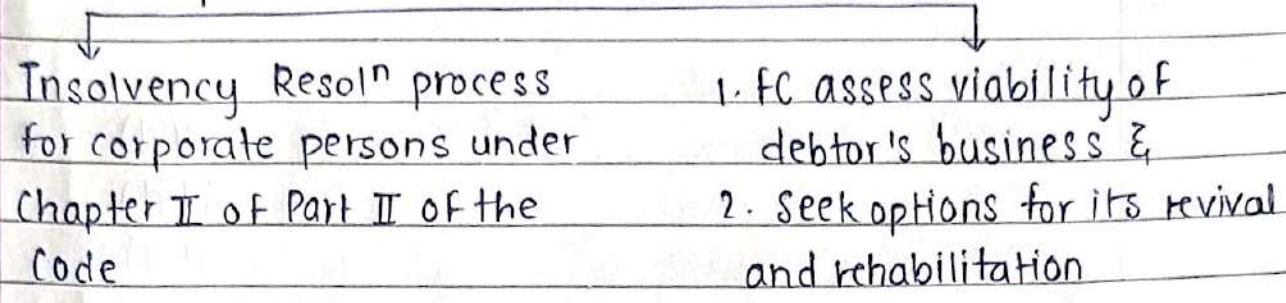 Insolvency Resolⁿ process
for corporate persons under
Chapter II of Part II of the
Code
1. FC assess viability of
debtor's business &
2. Seek options for its revival
and rehabilitation